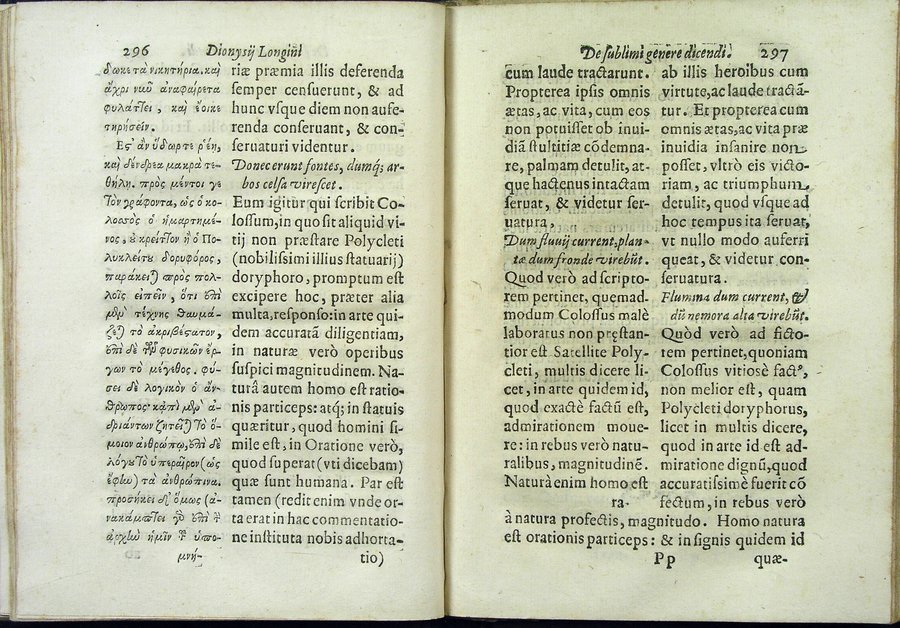 296 Dionysij Longini
δωκε τὰ νικητήρια, καὶ
ἄχρι νῦν ἀναφαίρετα
φυλάττει, καὶ ἔοικε
τηρήσειν.
Ἔς ἂν ὕδωρ τε ῥέη,
καὶ δένδρεα μακρὰ τε-
θήλη. πρὸς μέντοι γε
τὸν γράφοντα, ὡς ὁ κο-
λοσσὸς ὁ ἡμαρτημέ-
νος, οὐ κρείττων ἢ ὁ Πο-
λυκλείτου δορυφόρος,
παράκειται πρὸς πολ-
λοῖς εἰπεῖν, ὅτι ἐπὶ
μὲν τέχνης θαυμά-
ζεται τὸ ἀκριβέστατον,
ἐπὶ δὲ τῶν φυσικῶν ἔρ-
γων τὸ μέγεθος. φύ-
σει δὲ λογικὸν ὁ ἄν-
θρωπος· κἀπὶ μὲν ἀ-
δριάντων ζητεῖται τὸ ὅ-
μοιον ἀνθρώπῳ, ἐπὶ δὲ
λόγου τὸ ὑπεραῖρον (ὡς
ἔφην) τὰ ἀνθρώπινα.
προσήκει δ' ὅμως (ἀ-
νακάμπτει γὰρ ἐπὶ τὴν
ἀρχὴν ἡμῖν τοῦ ὑπο-
μνή-
riæ præmia illis deferenda
semper censuerunt, & ad
hunc vsque diem non aufe-
renda conseruant, & con-
seruaturi videntur.
Donec erunt fontes, dumq; ar-
bos celsa virescet.
Eum igitur qui scribit Co-
lossum, in quo sit aliquid vi-
tij non præstare Polycleti
(nobilissimi illius statuarij)
doryphoro, promptum est
excipere hoc, præter alia
multa, responso: in arte qui-
dem accuratã diligentiam,
in naturæ verò operibus
suspici magnitudinem. Na-
turâ autem homo est ratio-
nis particeps: atq; in statuis
quæritur, quod homini si-
mile est, in Oratione verò,
quod superat (vti dicebam)
quæ sunt humana. Par est
tamen (redit enim vnde or-
ta erat in hac commentatio-
ne instituta nobis adhorta-
tio)
De sublimi genere dicendi. 297
cum laude tractarunt.
Propterea ipsis omnis
ætas, ac vita, cum eos
non potuisset ob inui-
diã stultitiæ cõdemna-
re, palmam detulit, at-
que hactenus intactam
seruat, & videtur ser-
uatura,
Dum fluuij current, plan-
tæ dum fronde virebũt.
Quod verò ad scripto-
rem pertinet, quemad-
modum Colossus malè
laboratus non pręstan-
tior est Satellite Poly-
cleti, multis dicere li-
cet, in arte quidem id,
quod exactè factũ est,
admirationem moue-
re: in rebus verò natu-
ralibus, magnitudinẽ.
Natura enim homo est
ra-
ab illis heroibus cum
virtute, ac laude tractã-
tur. Et propterea cum
omnis ætas, ac vita præ
inuidia insanire non
posset, vltrò eis victo-
riam, ac triumphum
detulit, quod vsque ad
hoc tempus ita seruat,
vt nullo modo auferri
queat, & videtur con-
seruatura.
Flumina dum current, &
dũ nemora alta virebũt.
Quòd verò ad ficto-
rem pertinet, quoniam
Colossus vitiosè fact9,
non melior est, quam
Polycleti doryphorus,
licet in multis dicere,
quod in arte id est ad-
miratione dignũ, quod
accuratissimè fuerit cõ
fectum, in rebus verò
à natura profectis, magnitudo. Homo natura
est orationis particeps: & in signis quidem id
Pp quæ-